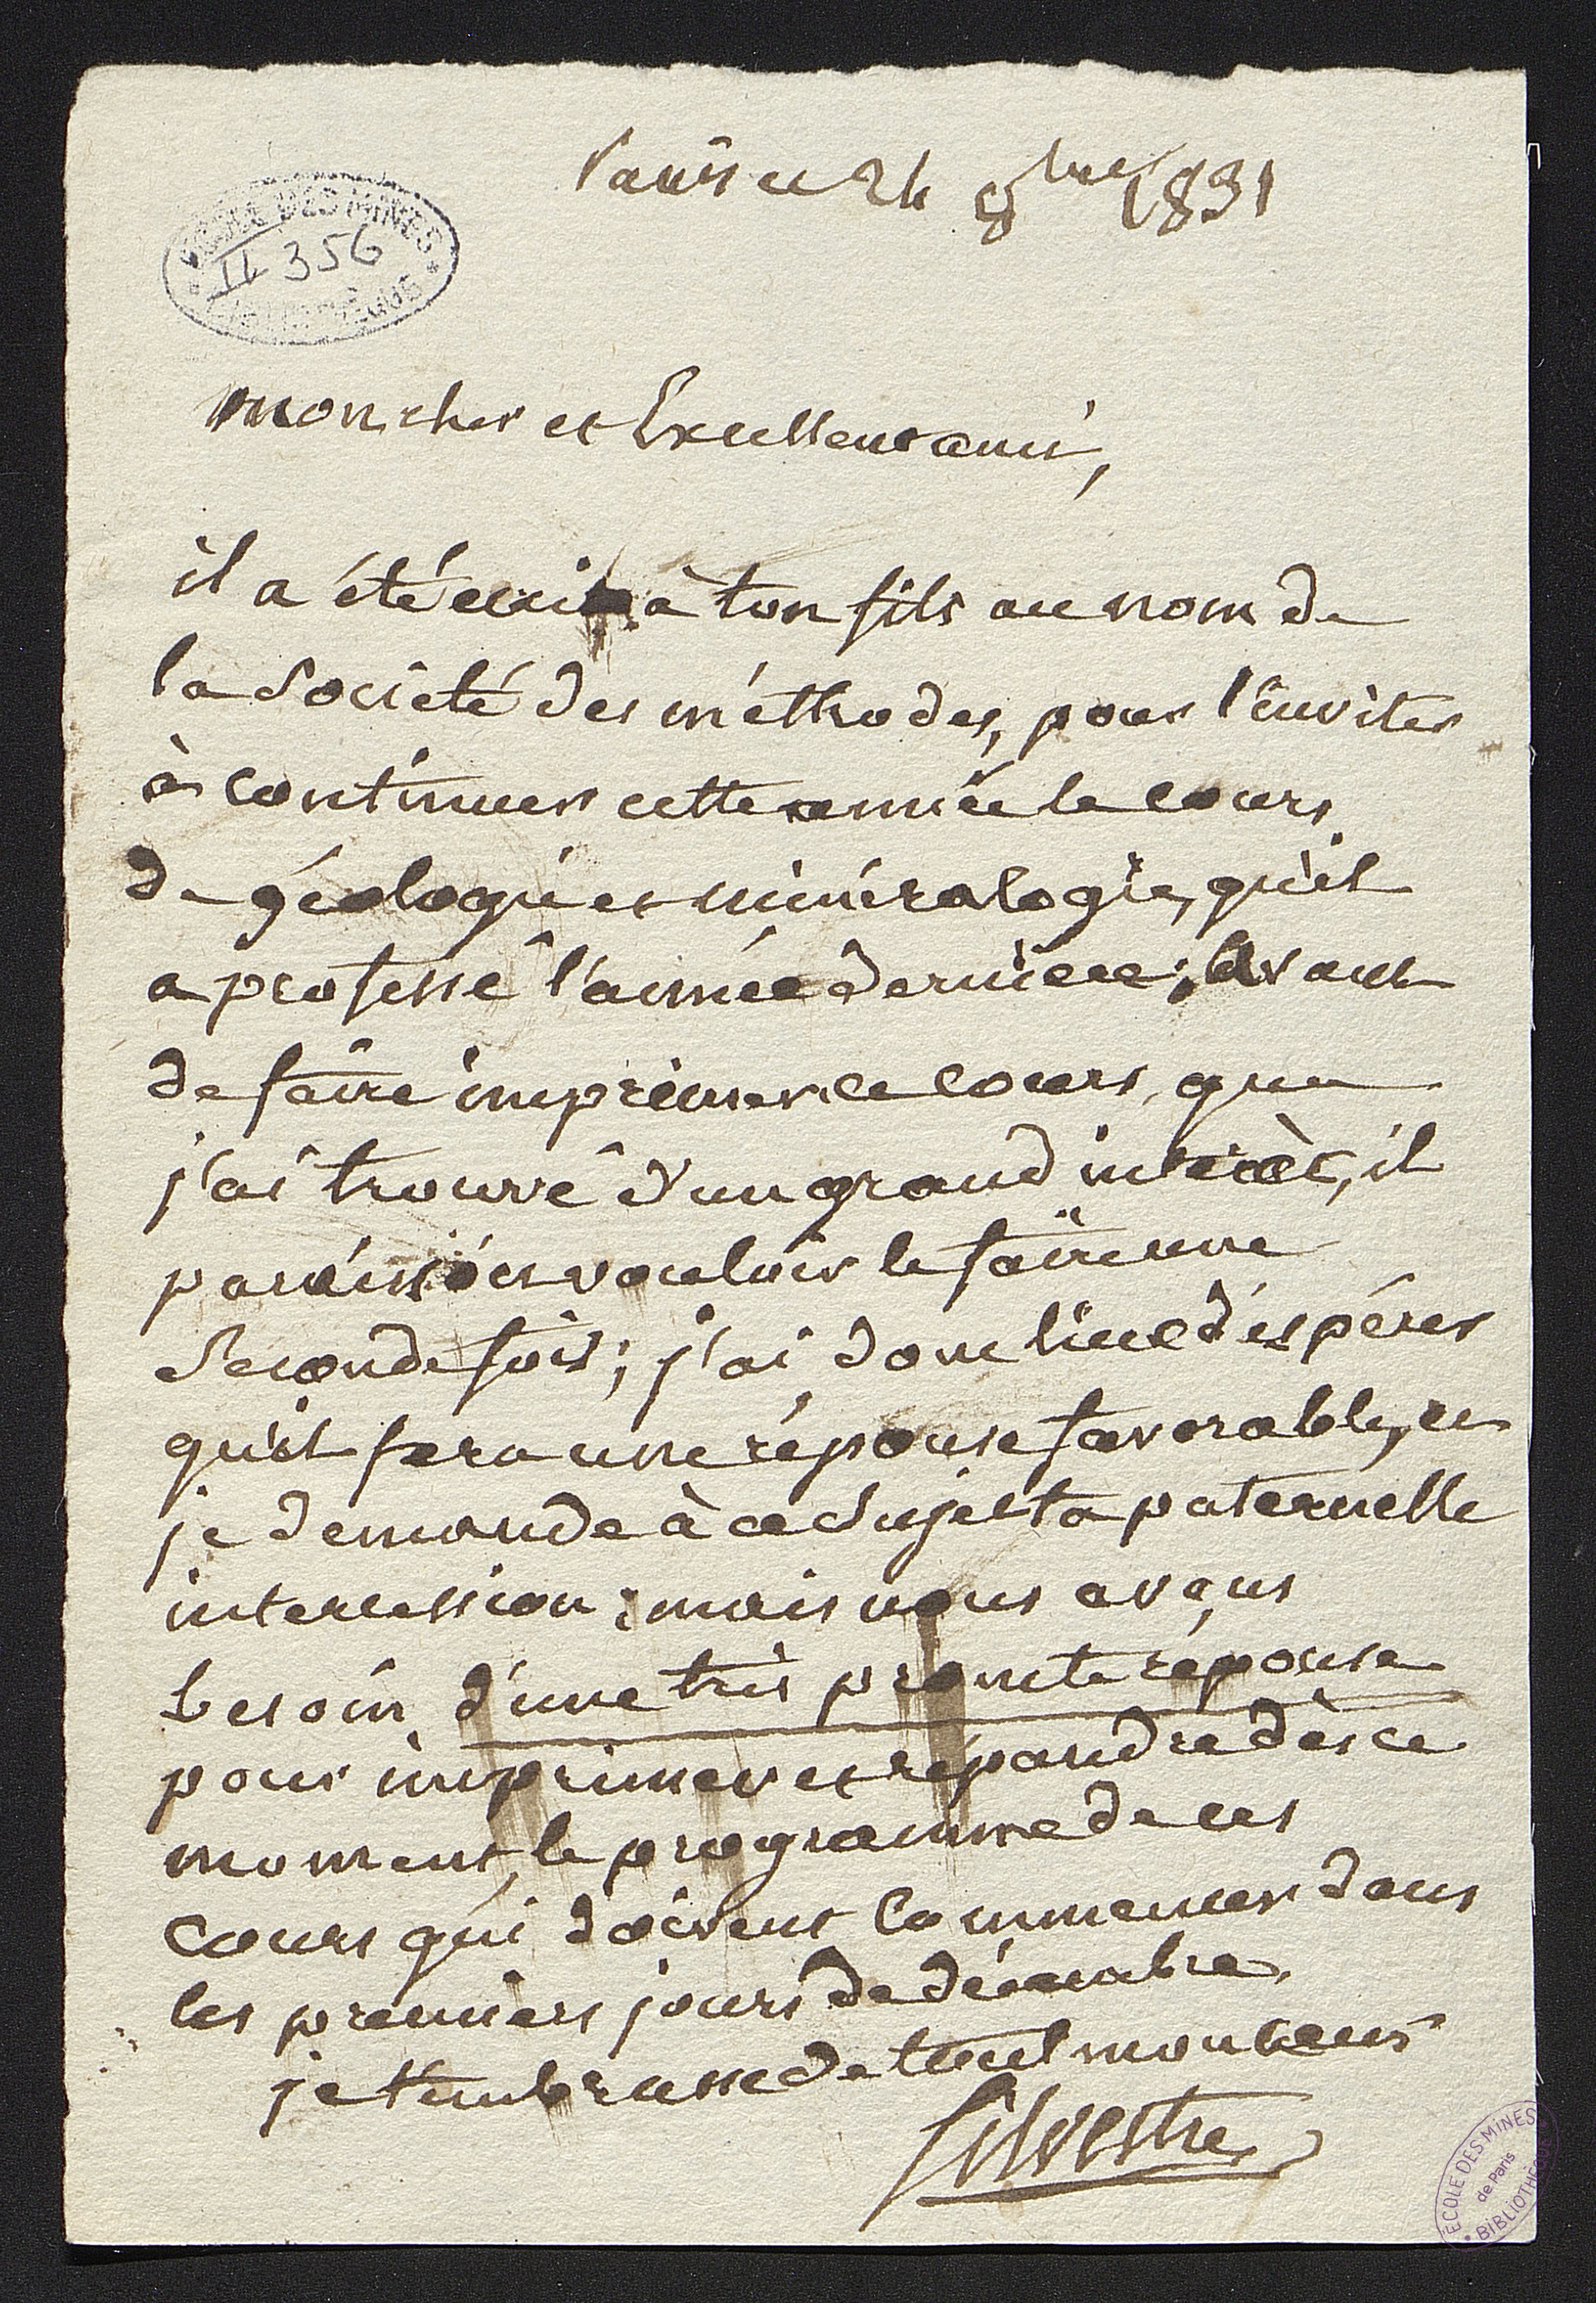 Paris ce 24 8bre 1831
ÉCOLE DES MINES
II 356
BIBLIOTHÈQUE
mon cher et Excellent ami,
il a été écrit à ton fils au nom de
la Société des méthodes, pour l'inviter
à continuer cette année le cours
de géologie et minéralogie, qu'il
a professé l'année derniere; avant
de faire imprimer ce cours, que
j'ai trouvé d'un grand intérèt, il
paraissoit vouloir le faire une
Seconde fois; j'ai donc lieu d'espérer
qu'il fera une réponse favorable, et
je demande à ce Sujet ta paternelle
intercession; mais nous avons
besoin d'une très promte réponse
pour imprimer et répandre dès ce
moment le programme de ces
cours qui doivent commencer dans
les premiers jours de décembre.
je t'embrasse de tout mon coeur
Silvestre
ÉCOLE DES MINES
de Paris
BIBLIOTHÈQUE